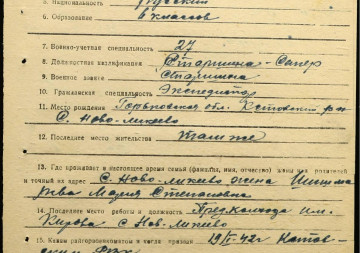 5. Национальность русский
6. Образование 6 классов
7. Военно-учетная специальность 27
8. Должностная квалификация Старшина-Сапер
9. Военное звание Старшина
10. Гражданская специальность Экспедитор
11. Место рождения Горьковская обл. Кстовский р-н
с. Ново-Ликеево
12. Последнее место жительства там же
13. Где проживает в настоящее время семья (фамилия, имя, отчество) жены или родителей
и точный их адрес с. Ново-Ликеево жена
Мария Степановна
14. Последнее место работы и должность Пред. колхоза им.
Кирова с Нов-Ликеево
15. Каким райгорвоенкоматом и когда призван 42г Кстов-
ским РВК